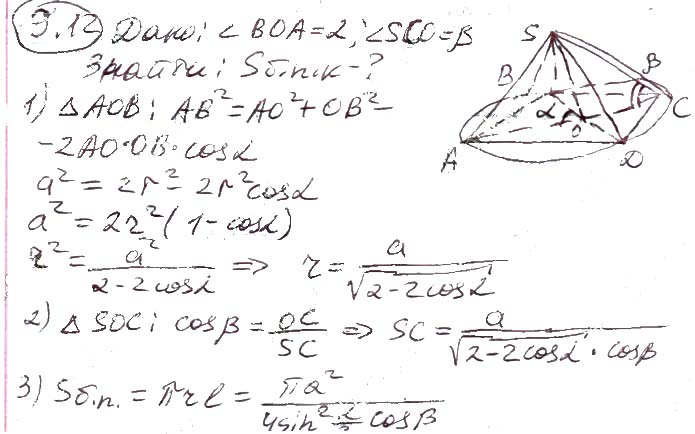 9.12 Дано: ∠BOA=α, ∠SCO=β
Знайти: Sб.п.к-?
1) △AOB: AB²=AO²+OB²-
-2AO·OB·cosα
a²=2r²-2r²cosα
a²=2r²(1-cosα)
r²=a²/(2-2cosα) => r=a/√(2-2cosα)
2) △SOC: cosβ=OC/SC => SC=a/(√(2-2cosα)·cosβ)
3) Sб.п.=πrl=πa²/(4sin²α/2 cosβ)
S
B
β
C
α
O
A
D